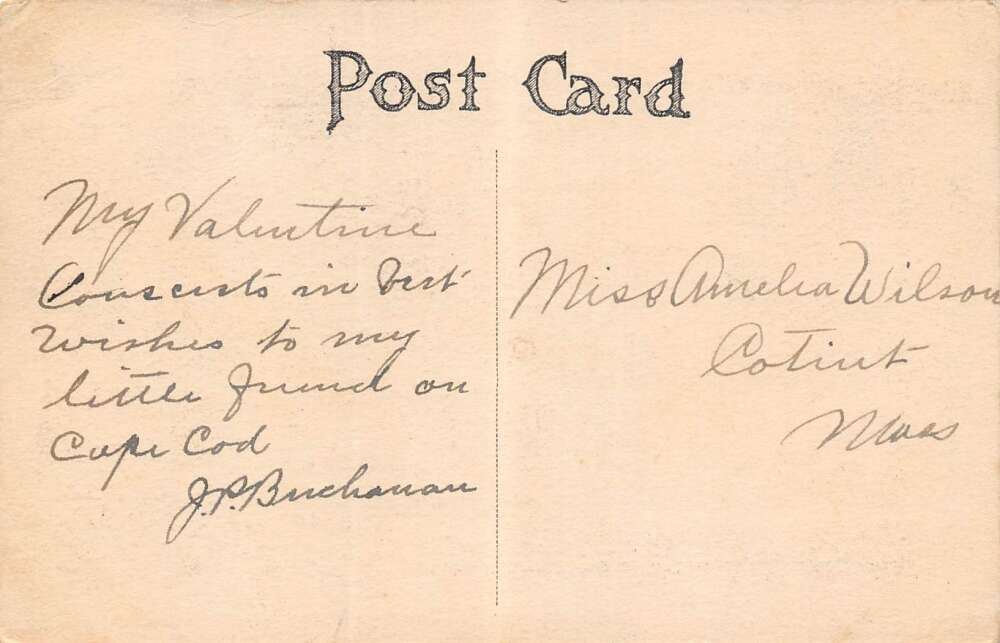 Post Card
My Valentine
Conscists in best
wishes to my
little friend on
Cape Cod
J.P. Buchanan
Miss Amelia Wilson
Cotiut
Mass